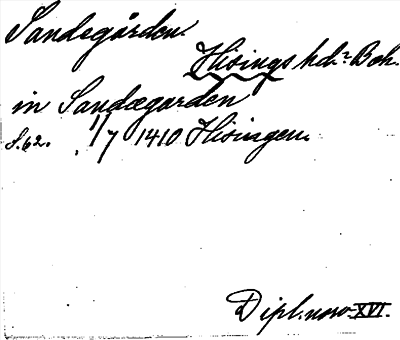 Sandegården.
Hisings hd: Boh.
in Sandægarden
S. 62. 1/7 1410 Hisingen.
Dipl. norv. XVI.